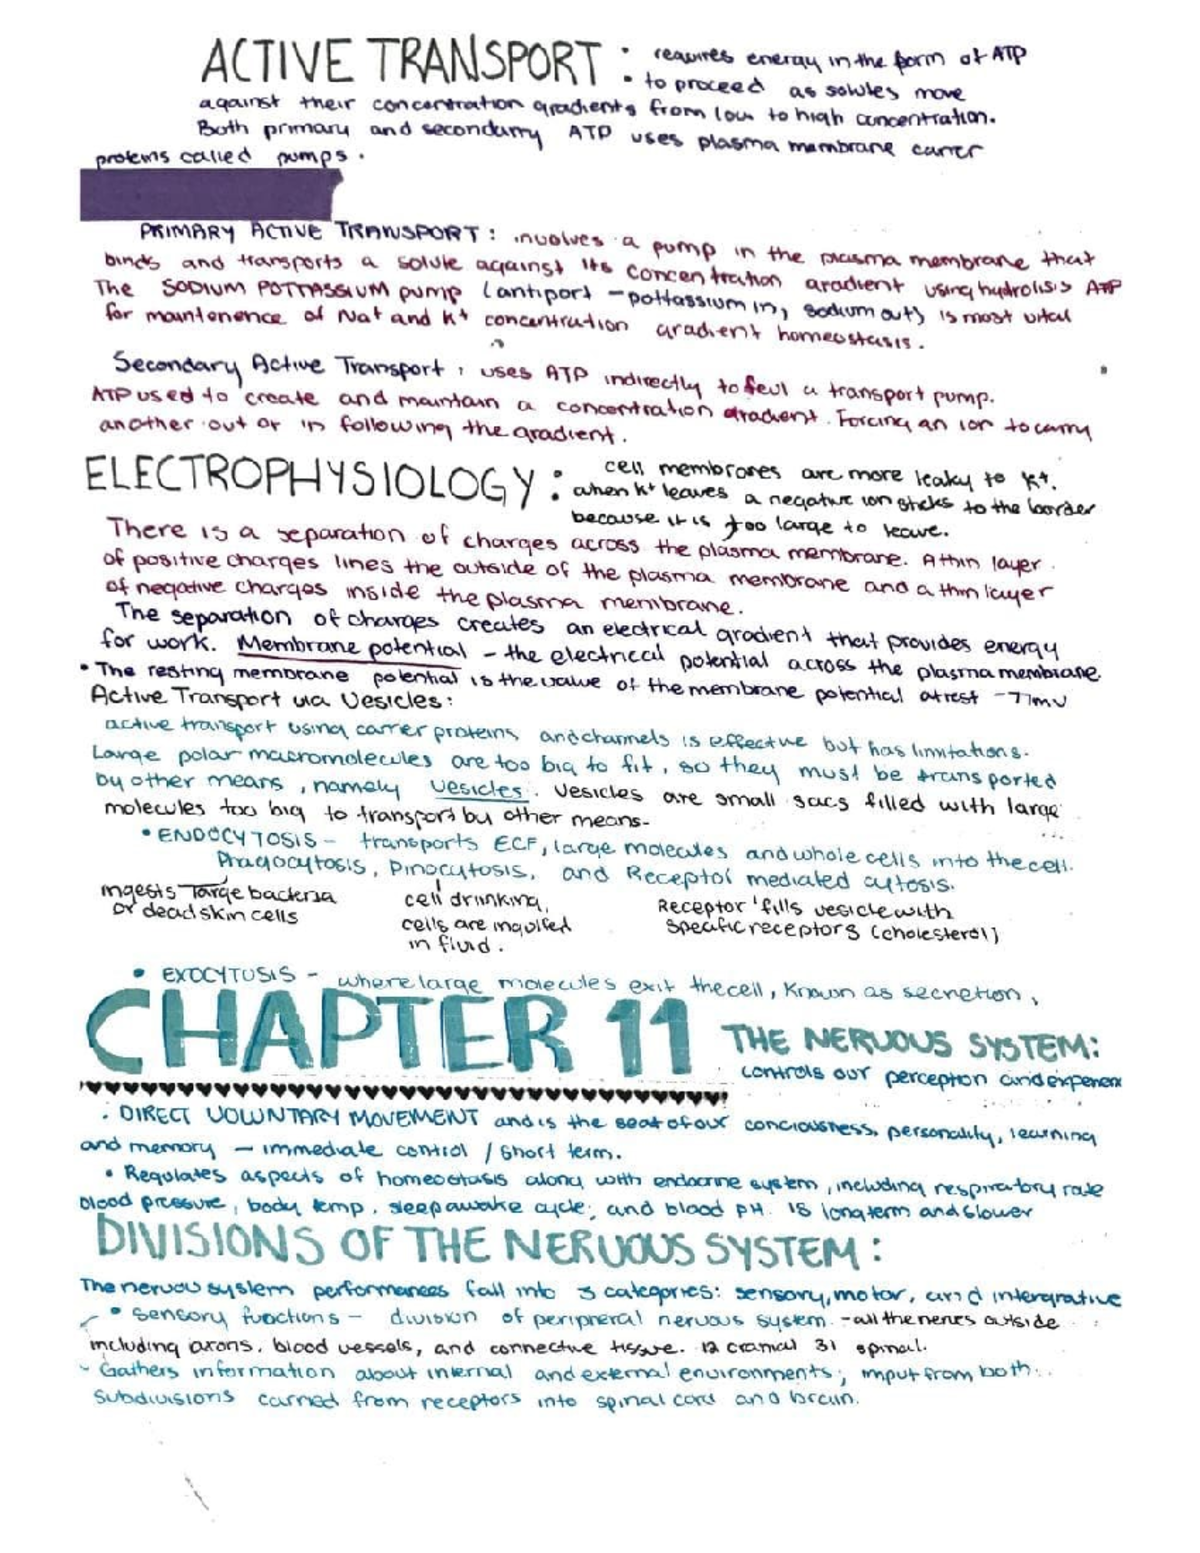 ACTIVE TRANSPORT : requires energy in the form of ATP
to proceed as solutes move
against their concentration gradients from low to high concentration.
Both primary and secondary ATP uses plasma membrane carrer
proteins called pumps.
PRIMARY ACTIVE TRANSPORT: involves a pump in the plasma membrane that
binds and transports a solute against its concentration gradient using hydrolisis ATP
The SODIUM POTTASSIUM pump (antiport - pottassium in, sodium out) is most vital
for maintenence of Na+ and K+ concentration gradient homeostasis.
Secondary Active Transport: uses ATP indirectly to feul a transport pump.
ATP used to create and maintain a concentration gradient. Forcing an ion to carry
another out or in following the gradient.
ELECTROPHYSIOLOGY : cell membranes are more leaky to K+.
when K+ leaves a negative ion sticks to the border
because it is too large to leave.
There is a separation of charges across the plasma membrane. A thin layer
of positive charges lines the outside of the plasma membrane and a thin layer
of negative charges inside the plasma membrane.
The separation of charges creates an electrical gradient that provides energy
for work. Membrane potential - the electrical potential across the plasma membrane.
• The resting membrane potential is the value of the membrane potential at rest -71mv
Active Transport via Vesicles:
active transport using carrer proteins and channels is effective but has limitations.
Large polar macromolecules are too big to fit, so they must be transported
by other means, namely vesicles. Vesicles are small sacs filled with large
molecules too big to transport by other means-
• ENDOCYTOSIS - transports ECF, large molecules and whole cells into the cell.
Phagocytosis, Pinocytosis, and Receptor mediated cytosis.
ingests large bacteria cell drinking, Receptor fills vesicle with
or dead skin cells cells are inquifed specific receptors (cholesterol)
in fluid.
• EXOCYTOSIS - where large molecules exit the cell, known as secretion,
CHAPTER 11 THE NERVOUS SYSTEM:
controls our perception and experience
• DIRECT VOLUNTARY MOVEMENT and is the seat of our conciousness, personality, learning
and memory - immediate control / short term.
• Regulates aspects of homeostasis along with endocrine system, including respiratory rate
blood pressure, body temp, sleep awake cycle, and blood pH. is long term and slower
DIVISIONS OF THE NERVOUS SYSTEM:
The nervous system performances fall into 3 categories: sensory, motor, and intergrative
• Sensory functions - division of peripheral nervous system - all the nerves outside
including axons, blood vessels, and connective tissue. 12 cranial 31 spinal.
- Gathers information about internal and external environments; input from both
subdivisions carried from receptors into spinal cord and brain.